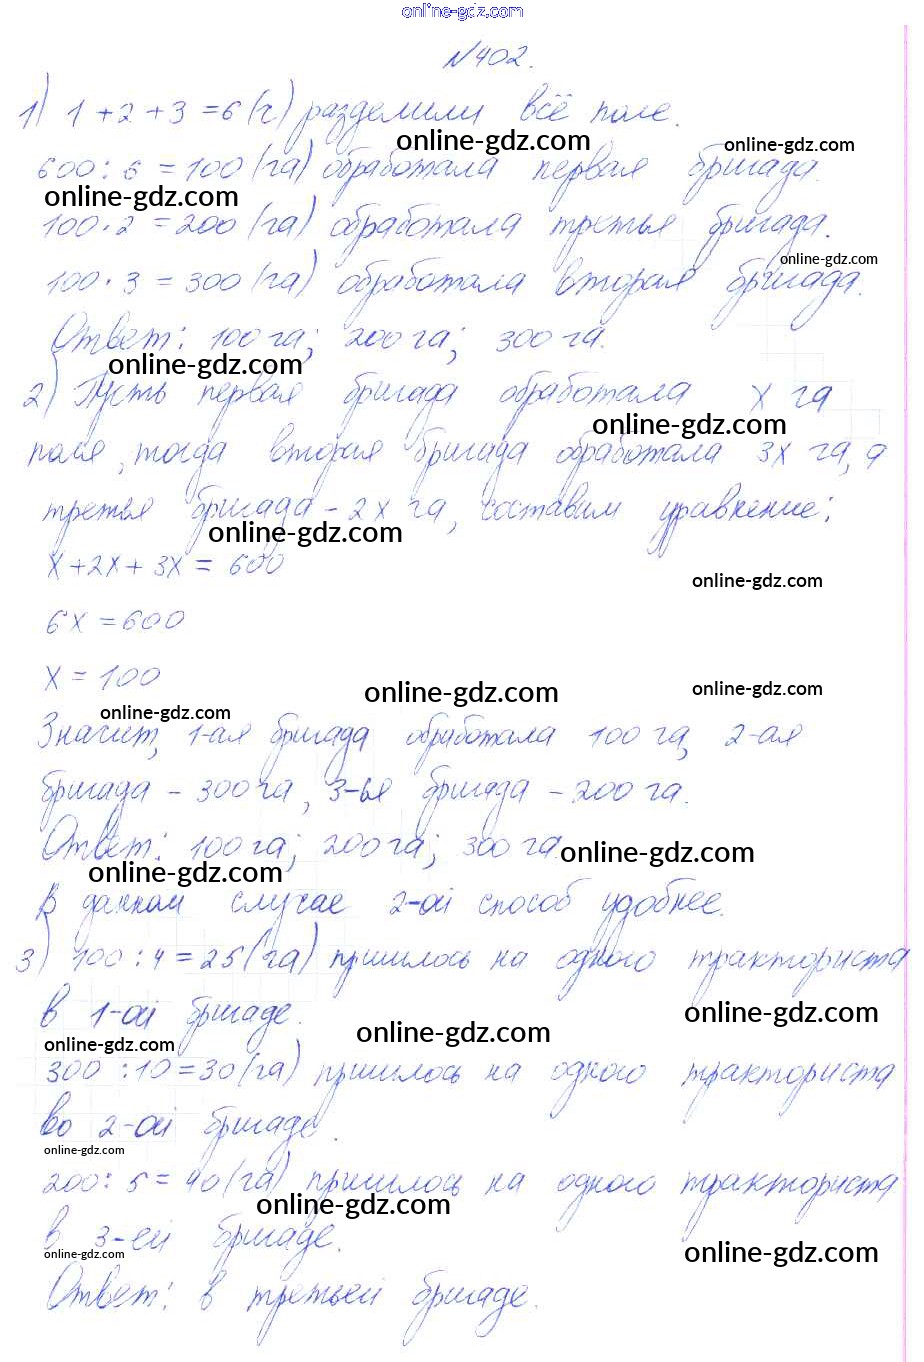 online-gdz.com
№402.
1) 1+2+3=6(ч) разделили всё поле.
online-gdz.com online-gdz.com
600:6=100(га) обработала первая бригада.
online-gdz.com
100·2=200(га) обработала третья бригада.
online-gdz.com
100·3=300(га) обработала вторая бригада.
Ответ: 100га; 200га; 300га.
online-gdz.com
2) Пусть первая бригада обработала х га
online-gdz.com
поля, тогда вторая бригада обработала 3х га, а
третья бригада - 2х га, составим уравнение:
online-gdz.com
х+2х+3х=600
online-gdz.com
6х=600
х=100
online-gdz.com online-gdz.com
online-gdz.com
Значит, 1-ая бригада обработала 100га, 2-ая
бригада - 300га, 3-ья бригада - 200га.
Ответ: 100га; 200га; 300га.
online-gdz.com
online-gdz.com
В данном случае 2-ой способ удобнее.
3) 100:4=25(га) пришлось на одного тракториста
в 1-ой бригаде.
online-gdz.com
online-gdz.com online-gdz.com
300:10=30(га) пришлось на одного тракториста
во 2-ой бригаде.
online-gdz.com
200:5=40(га) пришлось на одного тракториста
online-gdz.com
в 3-ей бригаде.
online-gdz.com online-gdz.com
Ответ: в третьей бригаде.